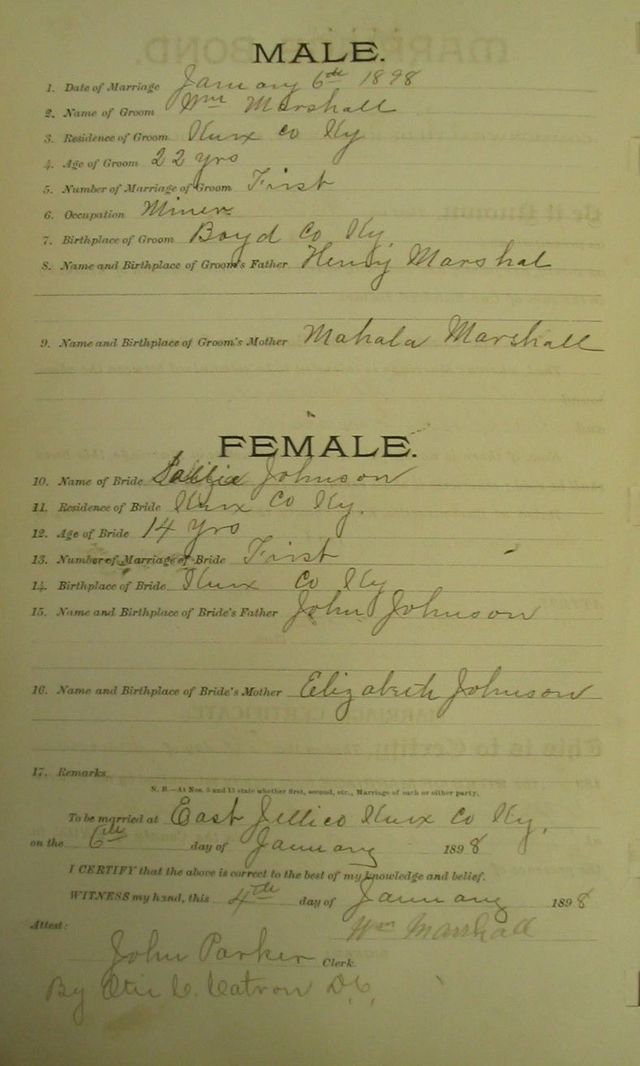 MALE.
1. Date of Marriage January 6th 1898
2. Name of Groom Wm Marshall
3. Residence of Groom Knox Co Ky
4. Age of Groom 22 yrs
5. Number of Marriage of Groom First
6. Occupation Miner
7. Birthplace of Groom Boyd Co Ky
8. Name and Birthplace of Groom's Father Henry Marshal
9. Name and Birthplace of Groom's Mother Mahala Marshall
FEMALE.
10. Name of Bride Sallie Johnson
11. Residence of Bride Knox Co Ky.
12. Age of Bride 14 yrs
13. Number of Marriage of Bride First
14. Birthplace of Bride Knox Co Ky
15. Name and Birthplace of Bride's Father John Johnson
16. Name and Birthplace of Bride's Mother Elizabeth Johnson
17. Remarks.
N. B.—At Nos. 5 and 13 state whether first, second, etc., Marriage of each or either party.
To be married at East Jellico Knox Co Ky,
on the 6th day of January 1898
I CERTIFY that the above is correct to the best of my knowledge and belief.
WITNESS my hand, this 4th day of January 1898
Wm Marshall
Attest:
John Parker Clerk.
By Catron D.C.